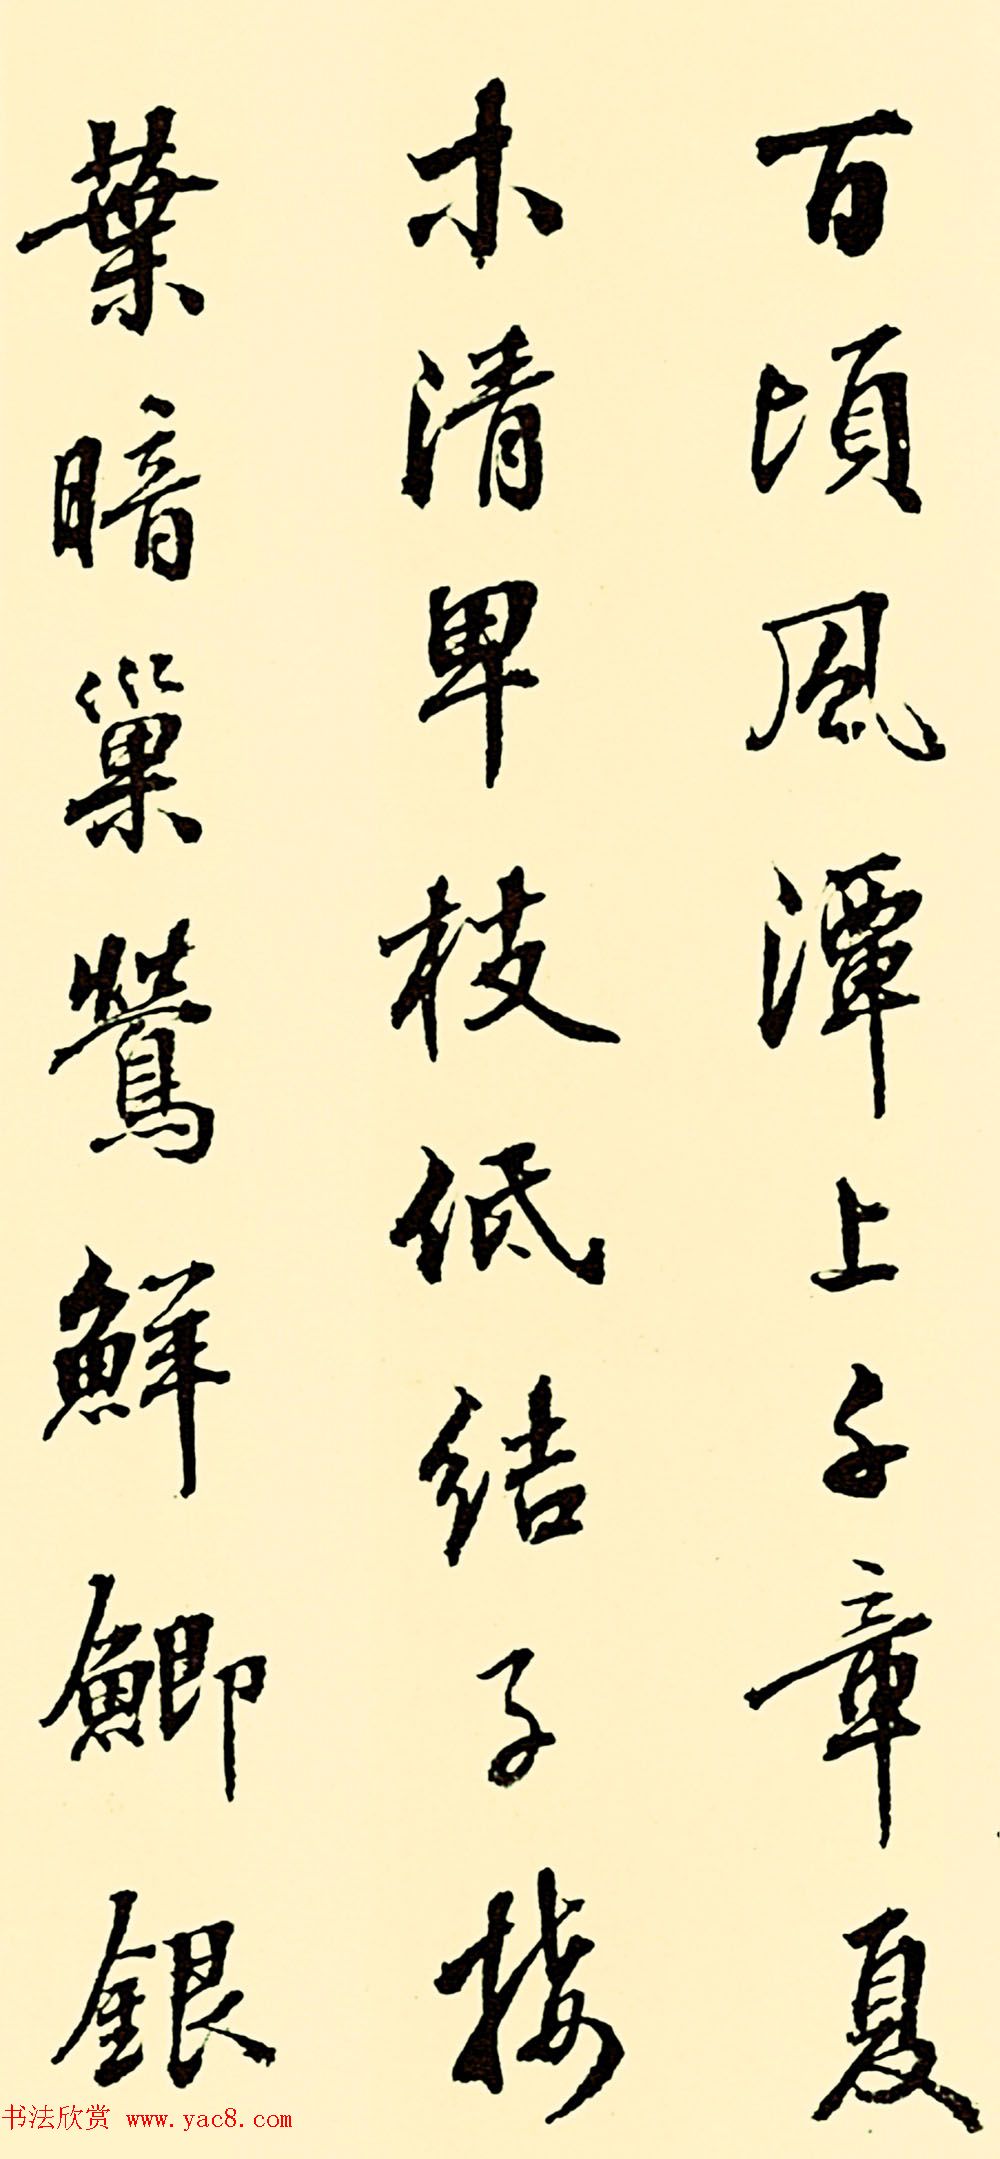 百頃風潭上千章夏
木清卑枝低結子接
葉暗巢鶯鮮鯽銀
书法欣赏 www.yac8.com